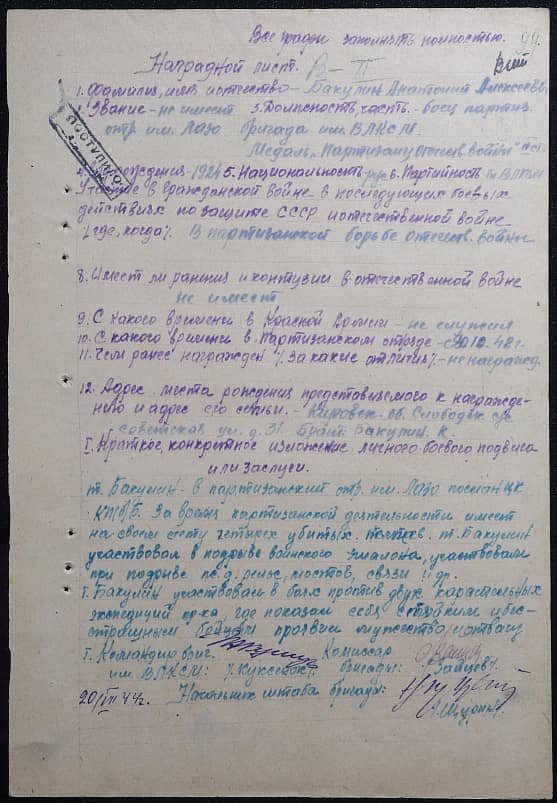 Все графы заполнять полностью. 94.
Наградной лист. В-II
1. Фамилия, имя, отчество - Бакулин Анатолий Алексеев
2. Звание - не имеет 3. Должность, часть - боец партиз.
отр. им. Лазо бригада им. ВЛКСМ.
Медаль „Партизану отечеств. войны" II ст.
ПОСТУПИЛО
рождения - 1924 5. Национальность - рус 6. Партийность чл. ВЛКСМ
Участие в Гражданской войне в последующих боевых
действиях по защите СССР и отечественной войне
/где, когда/. В партизанской борьбе отечеств. войны
8. Имеет ли ранения и контузии в отечественной войне
не имеет
9. С какого времени в Красной Армии - не служил
10. С какого времени в партизанском отряде - с 10.42 г.
11. Чем ранее награжден /За какие отличия/ - не награжд.
12. Адрес места рождения представляемого к награжде-
нию и адрес его семьи. - Кировск. об. Слободск.
советская ул. д. 31. Брат: Бакулин К.
I. Краткое, конкретное изложение личного боевого подвига
или заслуги.
т. Бакулин - в партизанский отр. им. Лазо послан ЦК
КП/б/Б. За время партизанской деятельности имеет
на своем счету четырех убитых. т. Бакулин
участвовал в подрыве воинского эшелона, участвовал
при подрыве ж.д. рельс, мостов, связи и др.
Т. Бакулин участвовал в боях против двух карательных
экспедиций пр-ка, где показал себя стойким и бес-
страшным бойцом проявил мужество и отвагу
Т. Командир бриг. Комиссар
им. ВЛКСМ: бригады: /Зайцев/.
20/VII 44 г. Начальник штаба бригады: